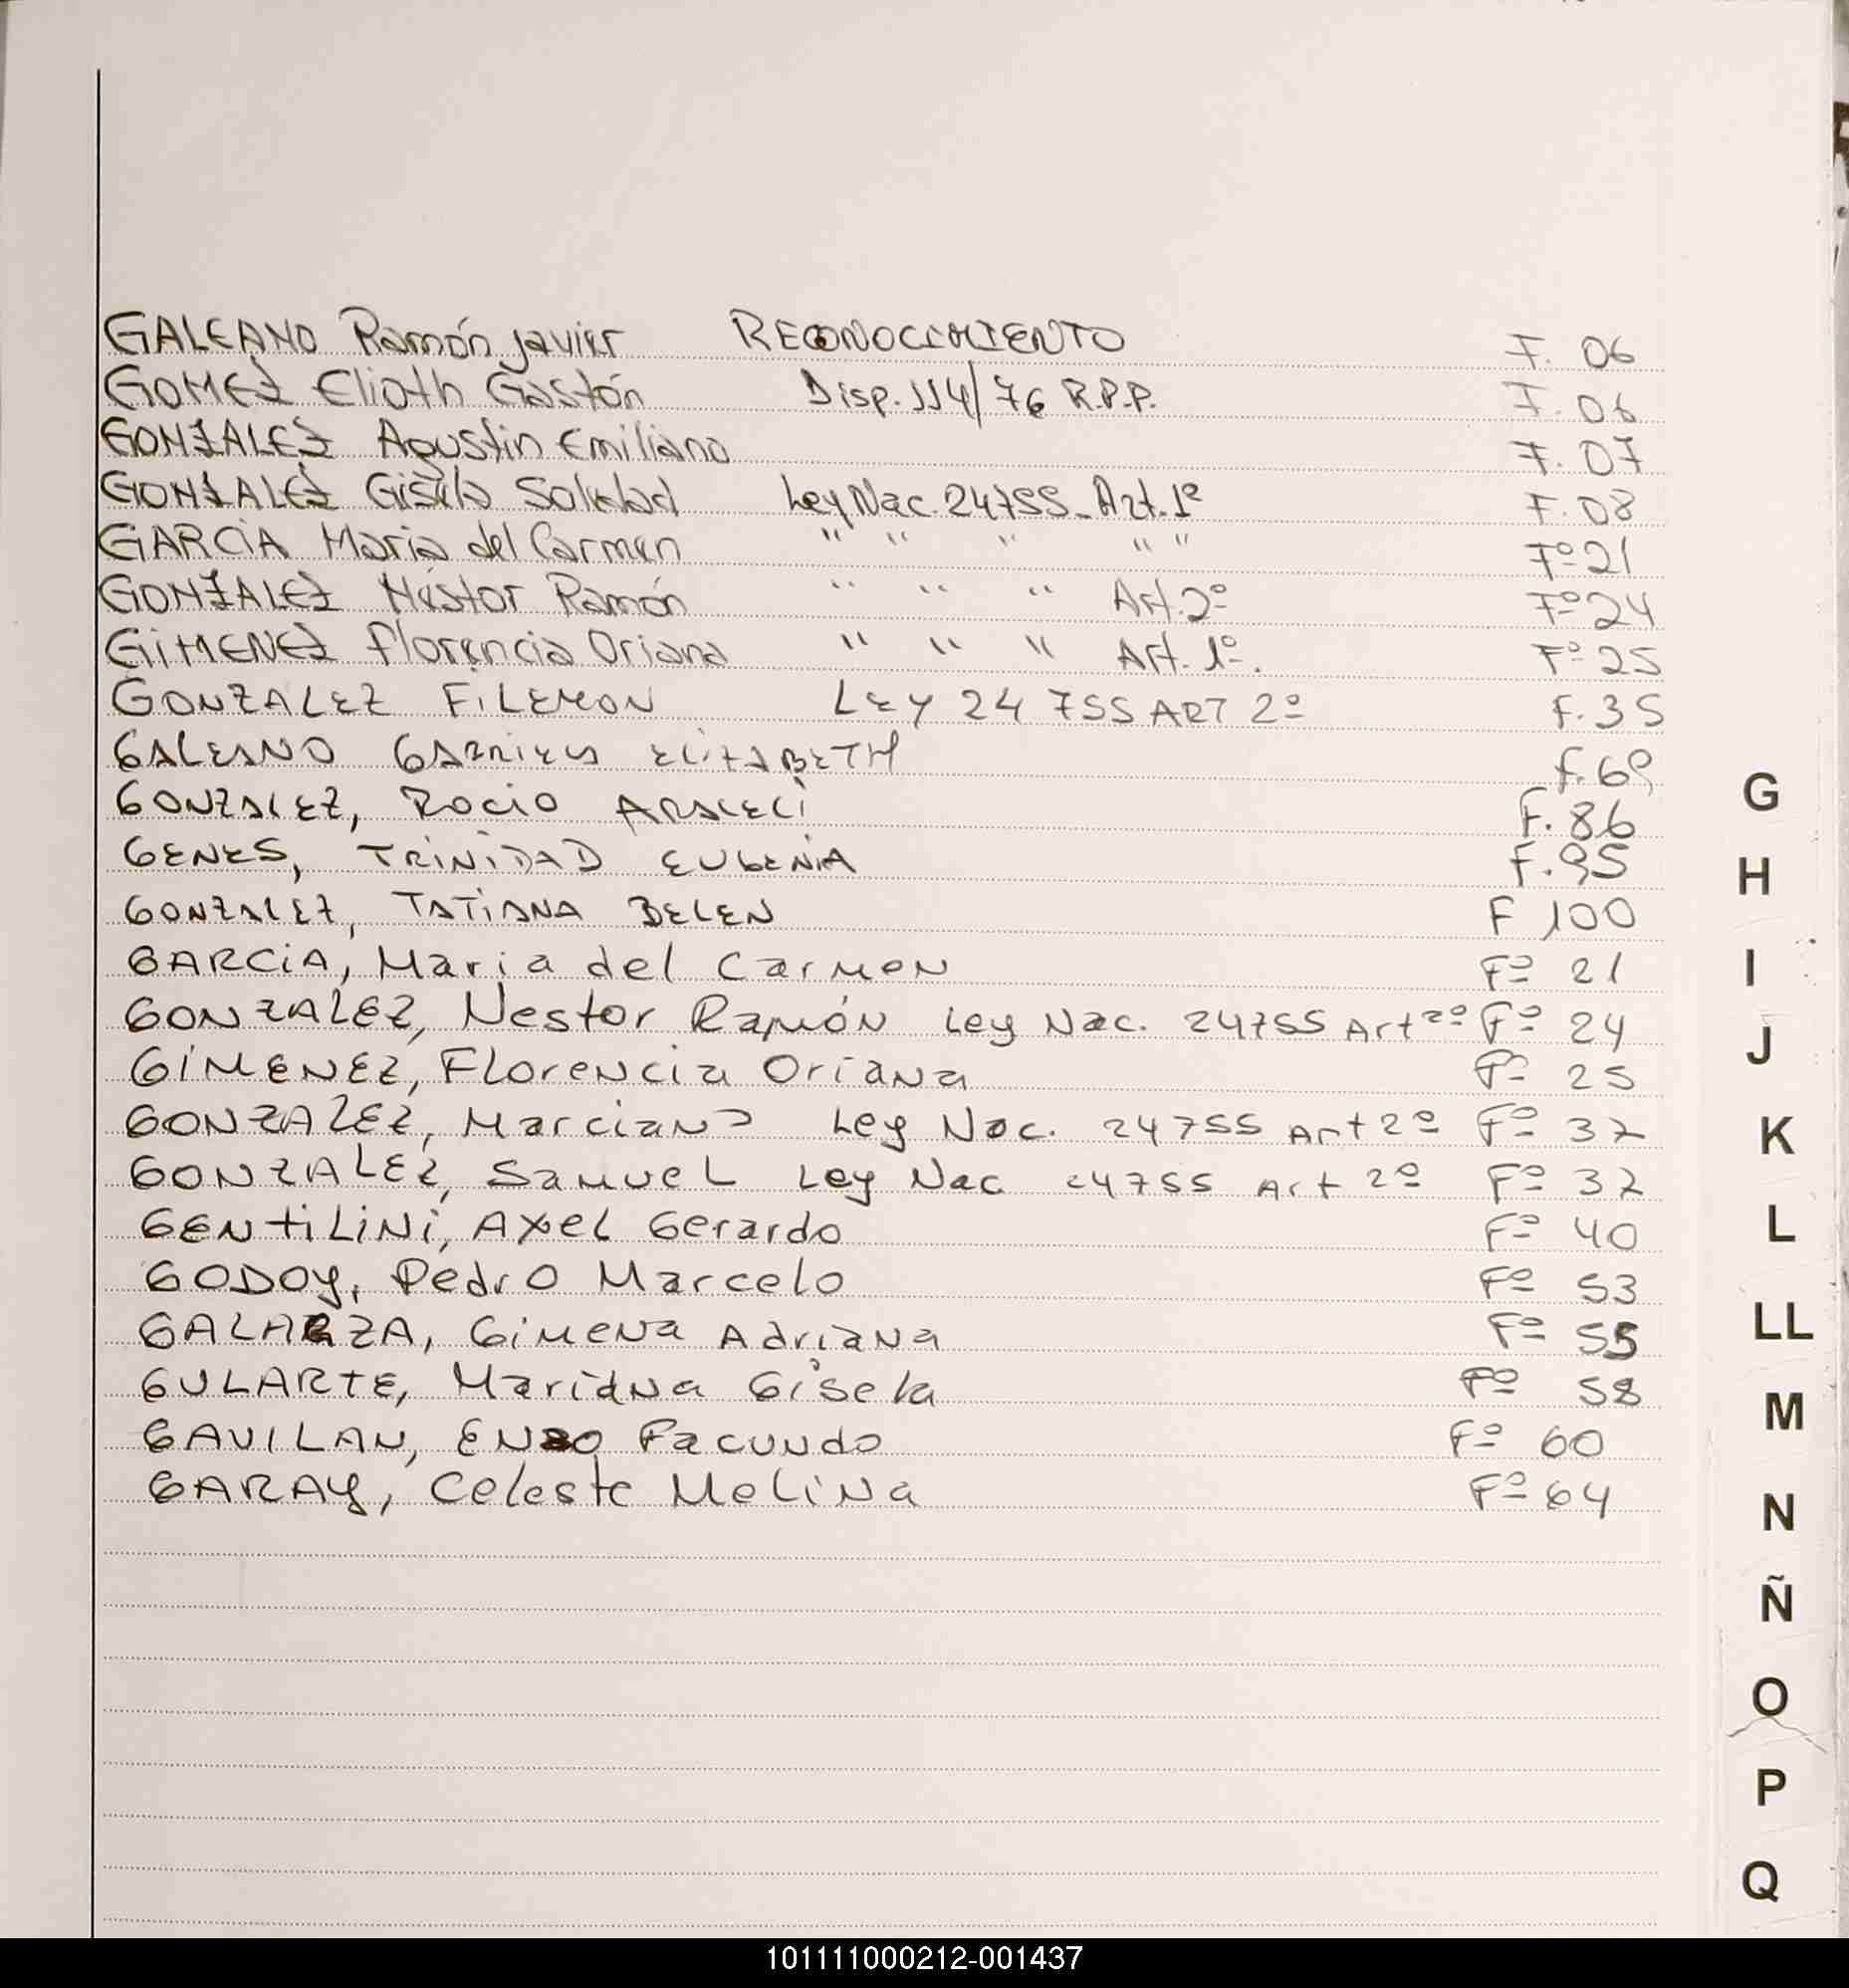 GALEANO Ramón Javier RECONOCIMIENTO F. 06
GOMEZ Elioth Gastón Disp. 114/76 R.P.P. F. 06
GONZALEZ Agustin Emiliano F. 07
GONZALEZ Gisela Soledad Ley Nac. 24755- Art. 1º F. 08
GARCIA Maria del Carmen " " " " " Fº 21
GONZALEZ Néstor Ramón " " " Art. 2º Fº 24
GIMENEZ Florencia Oriana " " " Art. 1º. Fº 25
GONZALEZ FILEMON LEY 24 755 ART 2º F. 35
GALEANO GABRIELA ELIZABETH F. 69
GONZALEZ, ROCIO ARACELI F. 86
GENES, TRINIDAD EUGENIA F. 95
GONZALEZ, TATIANA BELEN F 100
GARCIA, Maria del Carmen Fº 21
GONZALEZ, Nestor Ramón Ley Nac. 24755 Art 2º Fº 24
GIMENEZ, Florencia Oriana Fº 25
GONZALEZ, Marciano Ley Nac. 24755 Art 2º Fº 37
GONZALEZ, Samuel Ley Nac 24755 Art 2º Fº 37
GENTILINI, Axel Gerardo Fº 40
GODOY, Pedro Marcelo Fº 53
GALARZA, Gimena Adriana Fº 55
GULARTE, Mariana Gisela Fº 58
GAVILAN, ENZO Facundo Fº 60
GARAY, Celeste Melina Fº 64
G
H
I
J
K
L
LL
M
N
Ñ
O
P
Q
101111000212-001437